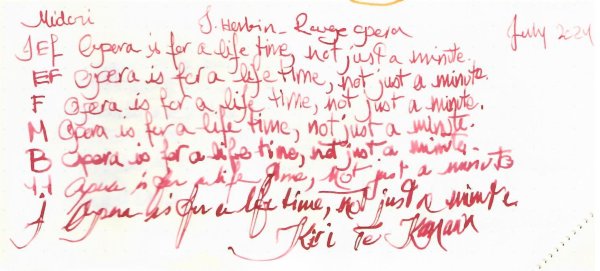 Midori J. Herbin - Rouge opera July 2024
JEF Opera is for a life time, not just a minute.
EF Opera is for a life time, not just a minute.
F Opera is for a life time, not just a minute.
M Opera is for a life time, not just a minute.
B Opera is for a life time, not just a minute.
Opera is for a life time, not just a minute
J Opera is for a life time, not just a minute
Kiri Te Kanawa